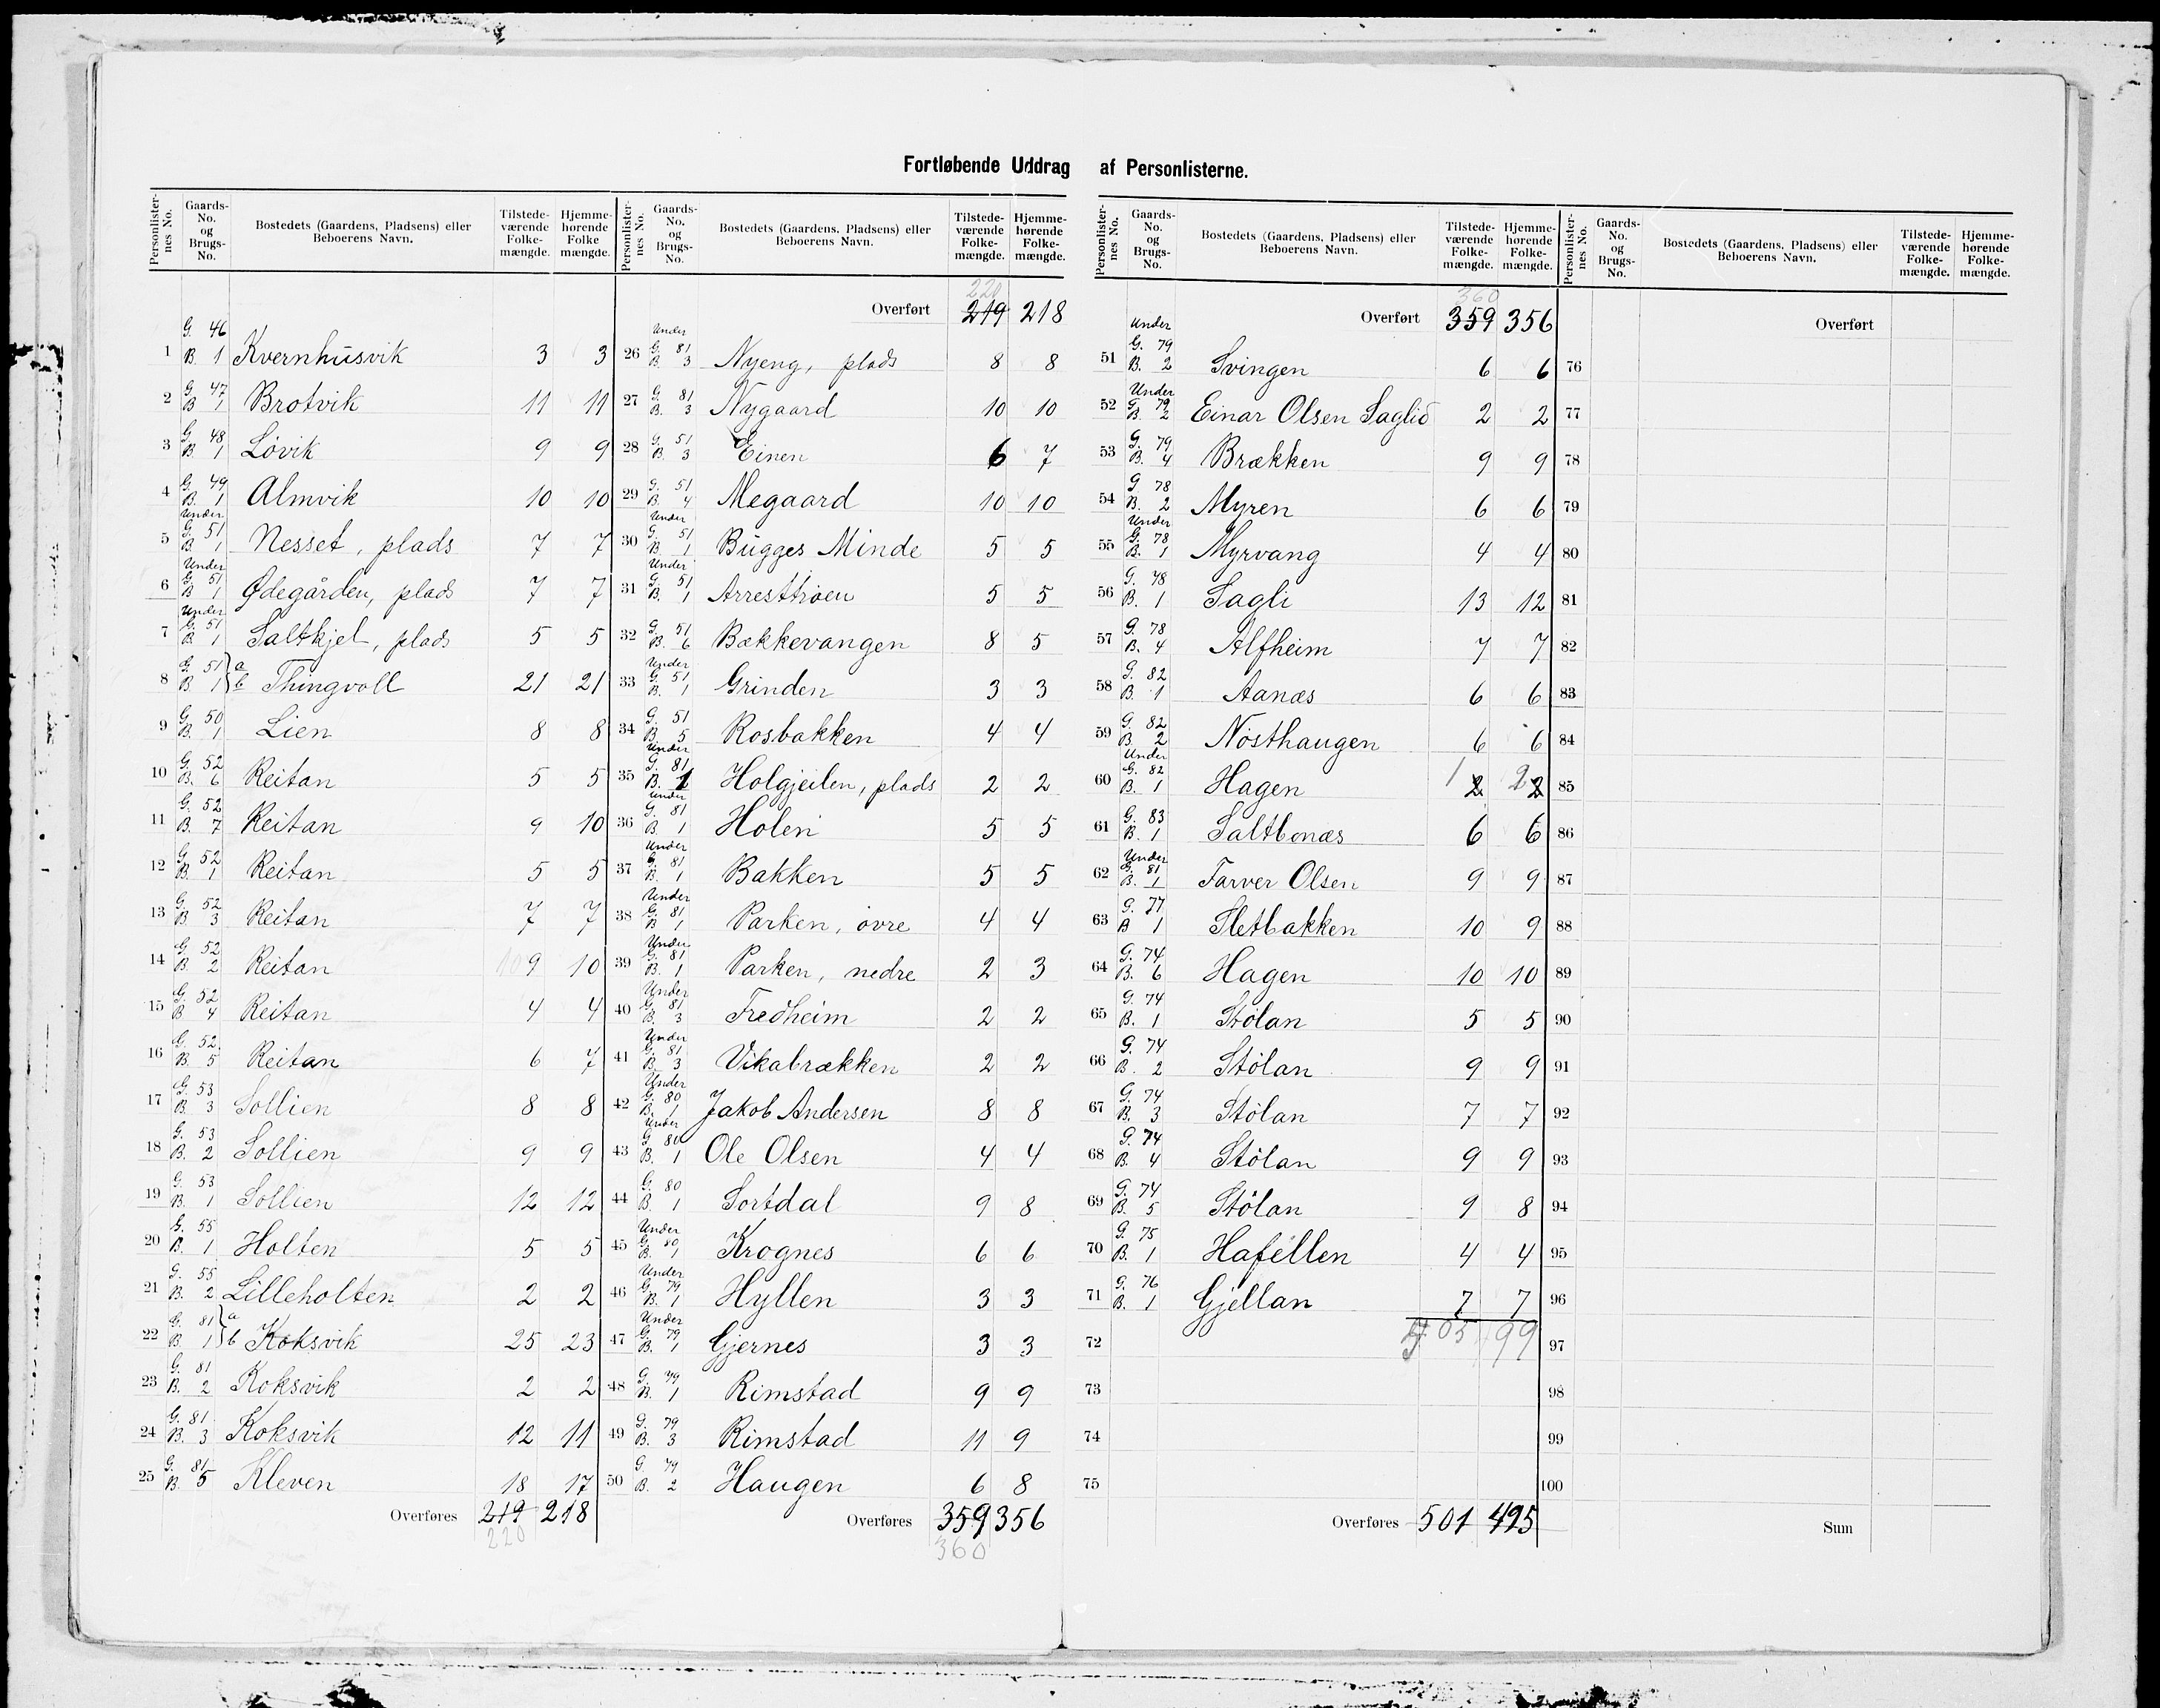 Fortløbende Uddrag af Personlisterne.
Personlisternes No. | Gaards-No. og Brugs-No. | Bostedets (Gaardens, Pladsens) eller Beboerens Navn. | Tilstedeværende Folkemængde. | Hjemmehørende Folkemængde.
1 G. 46 B. 1 Kvernhusvik 3 3
2 G. 47 B. 1 Brotvik 11 11
3 G. 48 B. 1 Lövik 9 9
4 G. 49 B. 1 Almvik 10 10
5 Under G. 51 B. 1 Nesset, plads 7 7
6 Under G. 51 B. 1 Ødegården, plads 7 7
7 Under G. 51 B. 1 Saltkjel, plads 5 5
8 G. 51 B. 1 a b Thingvoll 21 21
9 G. 50 B. 1 Lien 8 8
10 G. 52 B. 6 Reitan 5 5
11 G. 52 B. 7 Reitan 9 10
12 G. 52 B. 1 Reitan 5 5
13 G. 52 B. 3 Reitan 7 7
14 G. 52 B. 2 Reitan 10 9 10
15 G. 52 B. 4 Reitan 4 4
16 G. 52 B. 5 Reitan 6 7
17 G. 53 B. 3 Sollien 8 8
18 G. 53 B. 2 Sollien 9 9
19 G. 53 B. 1 Sollien 12 12
20 G. 55 B. 1 Holten 5 5
21 G. 55 B. 2 Lilleholten 2 2
22 G. 81 B. 1 a b Koksvik 25 23
23 G. 81 B. 2 Koksvik 2 2
24 G. 81 B. 3 Koksvik 12 11
25 G. 81 B. 5 Kleven 18 17
Overføres 219 218
220
220
Overført 219 218
26 Under G. 81 B. 3 Nyeng, plads 8 8
27 G. 81 B. 3 Nygaard 10 10
28 G. 51 B. 3 Einen 6 7
29 G. 51 B. 4 Megaard 10 10
30 Under G. 51 B. 1 Bugges Minde 5 5
31 Under G. 51 B. 1 Arresttröen 5 5
32 G. 51 B. 6 Bækkevangen 8 5
33 Under G. 51 B. 1 Grinden 3 3
34 G. 51 B. 5 Rosbakken 4 4
35 Under G. 81 B. 1 Holgjeilen, plads 2 2
36 Under G. 81 B. 1 Holen 5 5
37 Under G. 81 B. 1 Bakken 5 5
38 Under G. 81 B. 1 Parken, övre 4 4
39 Under G. 81 B. 1 Parken, nedre 2 3
40 Under G. 81 B. 3 Fredheim 2 2
41 Under G. 81 B. 3 Vikabrækken 2 2
42 Under G. 80 B. 1 Jakob Andersen 8 8
43 Under G. 80 B. 1 Ole Olsen 4 4
44 G. 80 B. 1 Sortdal 9 8
45 Under G. 80 B. 1 Krognes 6 6
46 Under G. 79 B. 1 Hyllen 3 3
47 Under G. 79 B. 1 Gjernes 3 3
48 G. 79 B. 1 Rimstad 9 9
49 G. 79 B. 3 Rimstad 11 9
50 G. 79 B. 2 Haugen 6 8
Overføres 359 356
360
Personlisternes No. | Gaards-No. og Brugs-No. | Bostedets (Gaardens, Pladsens) eller Beboerens Navn. | Tilstedeværende Folkemængde. | Hjemmehørende Folkemængde.
360
Overført 359 356
51 Under G. 79 B. 2 Svingen 6 6
52 Under G. 79 B. 2 Einar Olsen Saglid 2 2
53 G. 79 B. 4 Brækken 9 9
54 G. 78 B. 2 Myren 6 6
55 Under G. 78 B. 1 Myrvang 4 4
56 G. 78 B. 1 Sagli 13 12
57 G. 78 B. 4 Alfheim 7 7
58 G. 82 B. 1 Aanæs 6 6
59 G. 82 B. 2 Nösthaugen 6 6
60 Under G. 82 B. 1 Hagen 1 2 2 2
61 G. 83 B. 1 Saltbonæs 6 6
62 Under G. 81 B. 1 Farver Olsen 9 9
63 G. 77 B 1 Fletbakken 10 9
64 G. 74 B. 6 Hagen 10 10
65 G. 74 B. 1 Stölan 5 5
66 G. 74 B. 2 Stölan 9 9
67 G. 74 B. 3 Stölan 7 7
68 G. 74 B. 4 Stölan 9 9
69 G. 74 B. 5 Stölan 9 8
70 G. 75 B. 1 Hafellen 4 4
71 G. 76 B. 1 Gjellan 7 7
72
73
74
75
Overføres 501 495
Overført
76
77
78
79
80
81
82
83
84
85
86
87
88
89
90
91
92
93
94
95
96
97
98
99
100
Sum